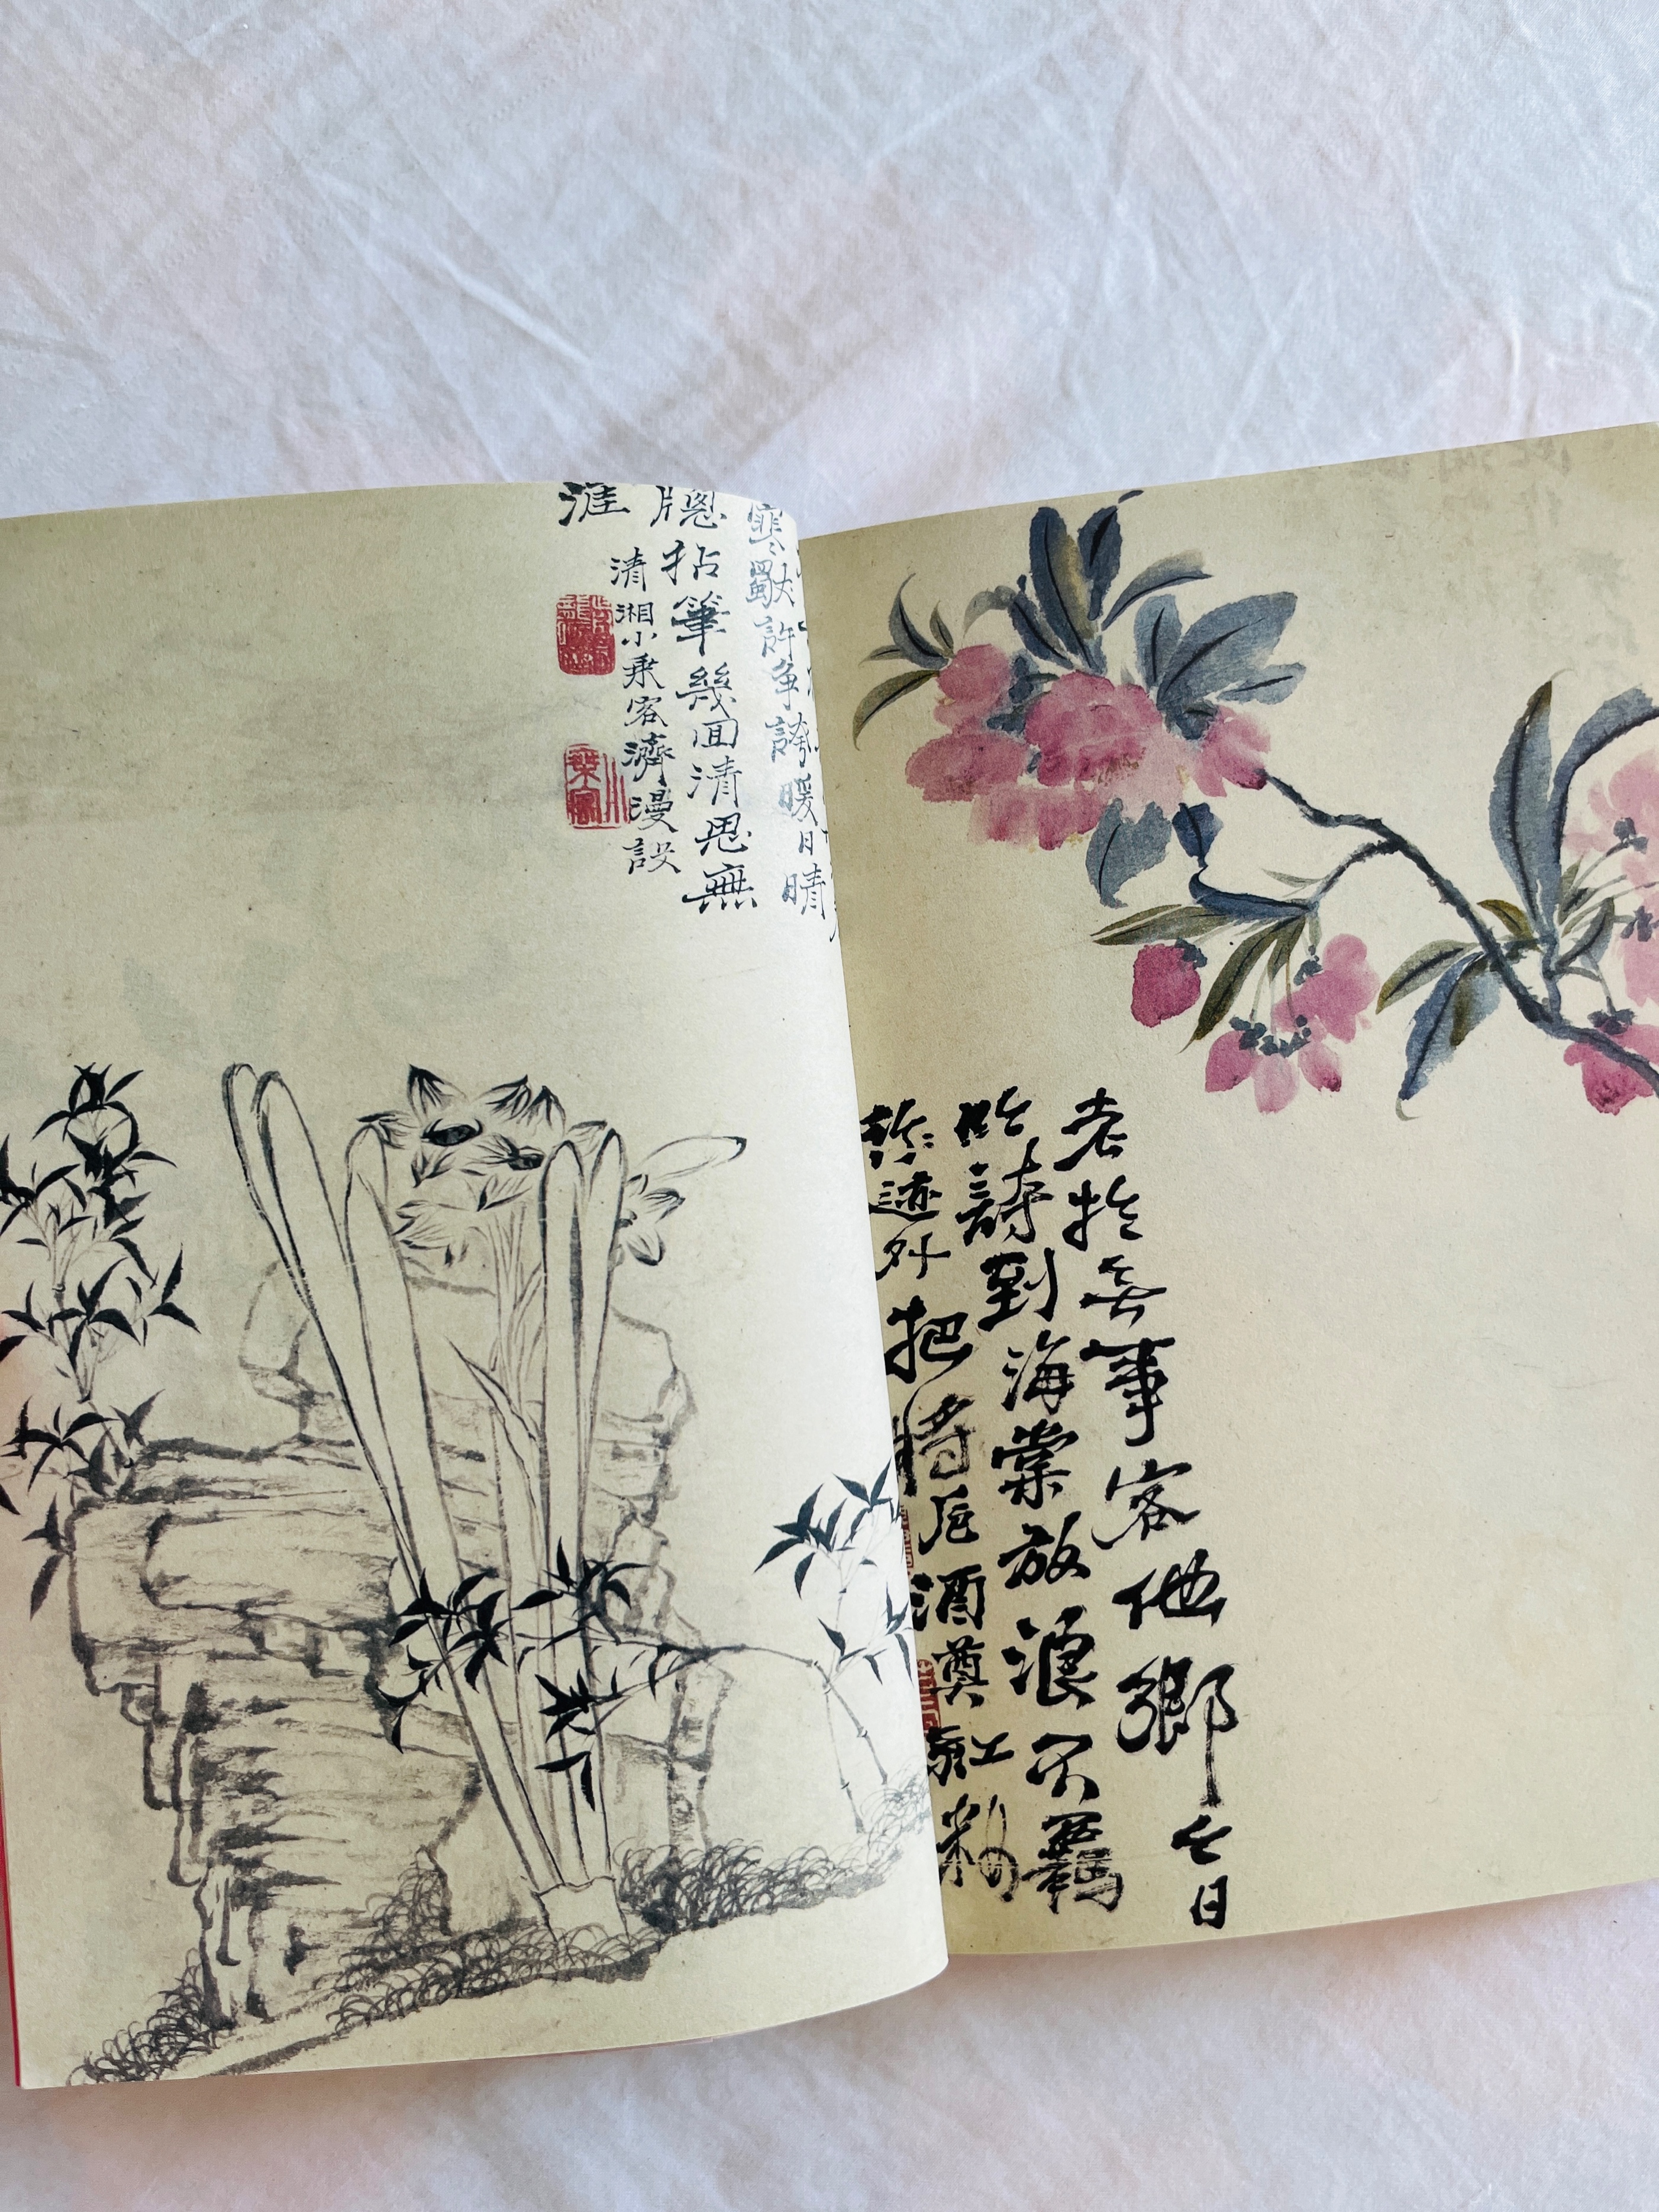 老於無事客他鄉今日
吟詩到海棠放浪不羈
形迹外把將卮酒奠紅粉
寒獨許爭誇暖日晴
牕拈筆幾回清思無
涯
清湘小乘客濟漫設
小乘客